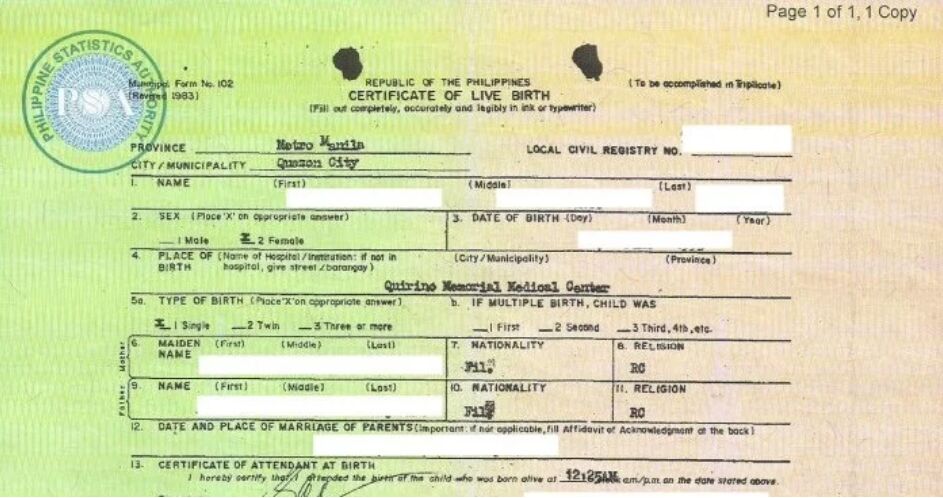 Page 1 of 1, 1 Copy
PHILIPPINE STATISTICS AUTHORITY
PSA
Municipal Form No. 102
(Revised 1983)
REPUBLIC OF THE PHILIPPINES
(To be accomplished in Triplicate)
CERTIFICATE OF LIVE BIRTH
(Fill out completely, accurately and legibly in ink or typewriter)
PROVINCE Metro Manila
LOCAL CIVIL REGISTRY NO.
CITY / MUNICIPALITY Quezon City
1. NAME (First) (Middle) (Last)
2. SEX (Place 'X' on appropriate answer) 3. DATE OF BIRTH (Day) (Month) (Year)
1 Male X 2 Female
4. PLACE OF BIRTH (Name of Hospital / Institution: if not in hospital, give street / barangay) (City / Municipality) (Province)
Quirino Memorial Medical Center
5a. TYPE OF BIRTH (Place 'X' on appropriate answer) b. IF MULTIPLE BIRTH, CHILD WAS
X 1 Single 2 Twin 3 Three or more 1 First 2 Second 3 Third, 4th, etc.
Mother
6. MAIDEN NAME (First) (Middle) (Last) 7. NATIONALITY 8. RELIGION
Fil. RC
Father
9. NAME (First) (Middle) (Last) 10. NATIONALITY 11. RELIGION
Fil. RC
12. DATE AND PLACE OF MARRIAGE OF PARENTS (Important: if not applicable, fill Affidavit of Acknowledgment at the back)
13. CERTIFICATE OF ATTENDANT AT BIRTH
I hereby certify that I attended the birth of the child who was born alive at 12:25AM am/p.m. on the date stated above.